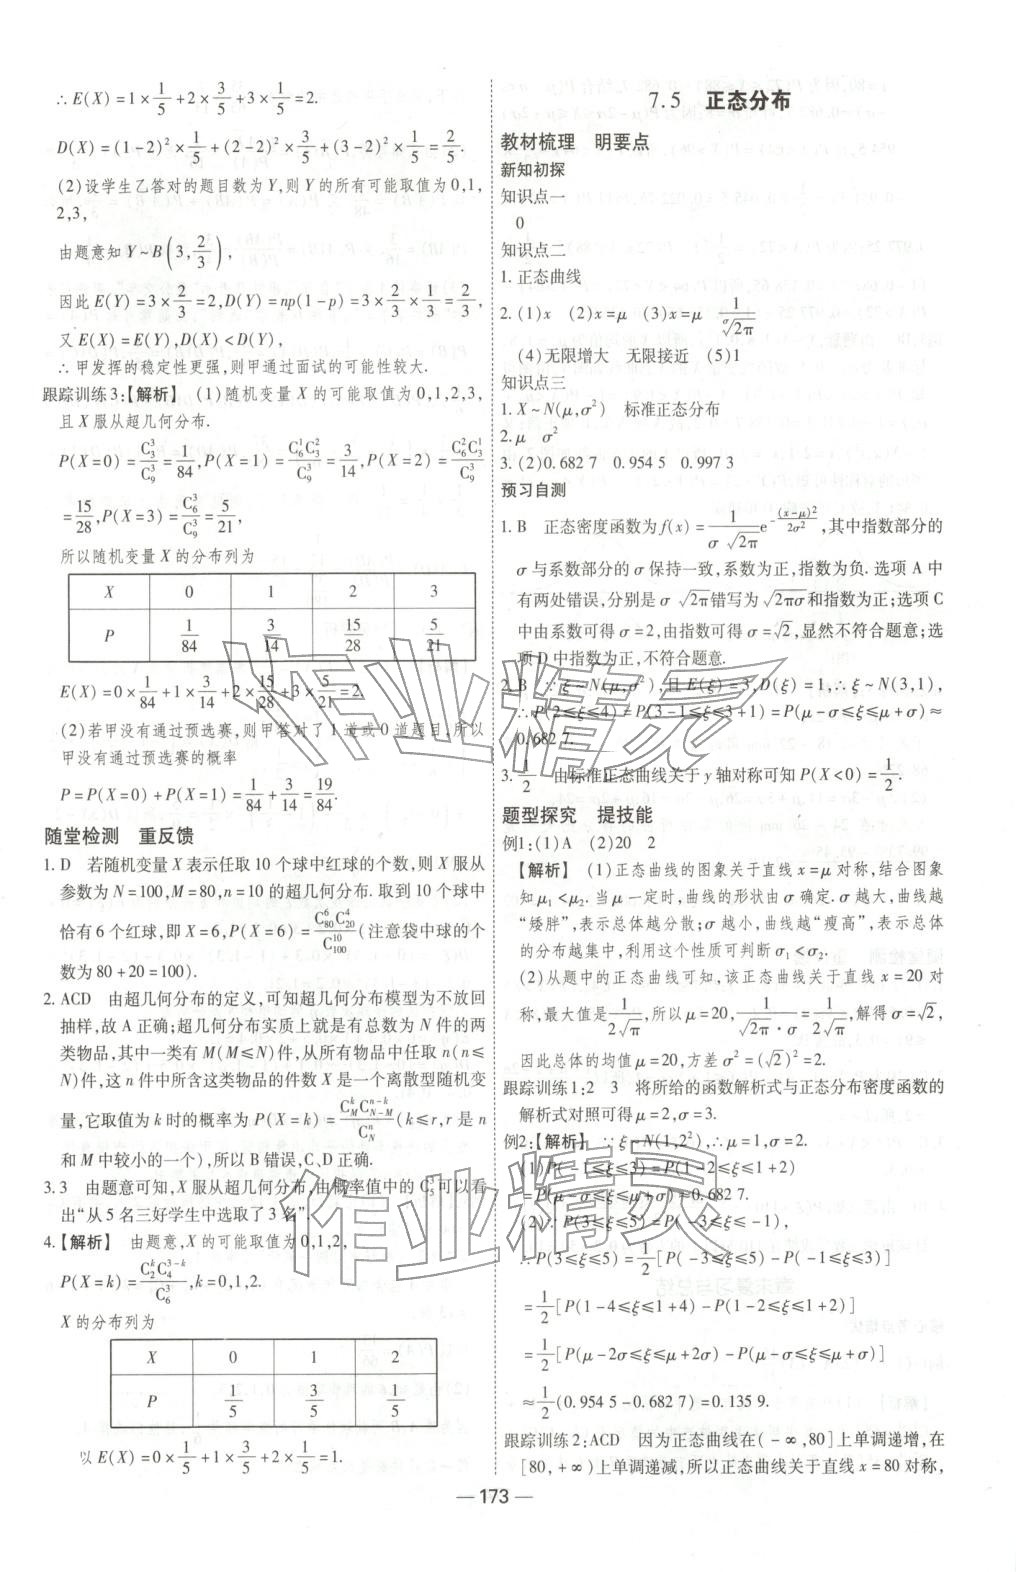 ∴E(X)=1×1/5+2×3/5+3×1/5=2.
D(X)=(1-2)²×1/5+(2-2)²×3/5+(3-2)²×1/5=2/5.
(2)设学生乙答对的题目数为Y,则Y的所有可能取值为0,1,
2,3,
由题意知Y~B(3,2/3),
因此E(Y)=3×2/3=2,D(Y)=np(1-p)=3×2/3×1/3=2/3.
又E(X)=E(Y),D(X)<D(Y),
∴甲发挥的稳定性更强,则甲通过面试的可能性较大.
跟踪训练3:【解析】 (1)随机变量X的可能取值为0,1,2,3,
且X服从超几何分布.
P(X=0)=C₃³/C₉³=1/84,P(X=1)=C₆¹C₃²/C₉³=3/14,P(X=2)=C₆²C₃¹/C₉³
=15/28,P(X=3)=C₆³/C₉³=5/21,
所以随机变量X的分布列为
X 0 1 2 3
P 1/84 3/14 15/28 5/21
E(X)=0×1/84+1×3/14+2×15/28+3×5/21=2.
(2)若甲没有通过预选赛,则甲答对了1道或0道题目,所以
甲没有通过预选赛的概率
P=P(X=0)+P(X=1)=1/84+3/14=19/84.
随堂检测 重反馈
1. D 若随机变量X表示任取10个球中红球的个数,则X服从
参数为N=100,M=80,n=10的超几何分布.取到10个球中
恰有6个红球,即X=6,P(X=6)=C₈₀⁶C₂₀⁴/C₁₀₀¹⁰(注意袋中球的个
数为80+20=100).
2. ACD 由超几何分布的定义,可知超几何分布模型为不放回
抽样,故A正确;超几何分布实质上就是有总数为N件的两
类物品,其中一类有M(M⩽N)件,从所有物品中任取n(n⩽
N)件,这n件中所含这类物品的件数X是一个离散型随机变
量,它取值为k时的概率为P(X=k)=C_M^k C_{N-M}^{n-k}/C_N^n(k⩽r,r是n
和M中较小的一个),所以B错误,C、D正确.
3.3 由题意可知,X服从超几何分布,由概率值中的C₅³可以看
出“从5名三好学生中选取了3名”.
4.【解析】 由题意,X的可能取值为0,1,2,
P(X=k)=C₂^k C₄^{3-k}/C₆³,k=0,1,2.
X的分布列为
X 0 1 2
P 1/5 3/5 1/5
以E(X)=0×1/5+1×3/5+2×1/5=1.
7.5 正态分布
教材梳理 明要点
新知初探
知识点一
0
知识点二
1. 正态曲线
2. (1)x (2)x=μ (3)x=μ 1/(σ√2π)
(4)无限增大 无限接近 (5)1
知识点三
1. X~N(μ,σ²) 标准正态分布
2. μ σ²
3. (2)0.682 7 0.954 5 0.997 3
预习自测
1. B 正态密度函数为f(x)=1/(σ√2π)e^{-(x-μ)²/2σ²},其中指数部分的
σ与系数部分的σ保持一致,系数为正,指数为负.选项A中
有两处错误,分别是σ√2π错写为√2πσ和指数为正;选项C
中由系数可得σ=2,由指数可得σ=√2,显然不符合题意;选
项D中指数为正,不符合题意.
2. B ∵ξ~N(μ,σ²),且E(ξ)=3,D(ξ)=1,∴ξ~N(3,1),
∴P(2⩽ξ⩽4)=P(3-1⩽ξ⩽3+1)=P(μ-σ⩽ξ⩽μ+σ)≈
0.682 7.
3. 1/2 由标准正态曲线关于y轴对称可知P(X<0)=1/2.
题型探究 提技能
例1:(1)A (2)20 2
【解析】 (1)正态曲线的图象关于直线x=μ对称,结合图象可
知μ₁<μ₂.当μ一定时,曲线的形状由σ确定.σ越大,曲线越
“矮胖”,表示总体越分散;σ越小,曲线越“瘦高”,表示总体
的分布越集中,利用这个性质可判断σ₁<σ₂.
(2)从题中的正态曲线可知,该正态曲线关于直线x=20对
称,最大值是1/(2√π),所以μ=20,1/(√2π·σ)=1/(2√π),解得σ=√2,
因此总体的均值μ=20,方差σ²=(√2)²=2.
跟踪训练1:2 3 将所给的函数解析式与正态分布密度函数的
解析式对照可得μ=2,σ=3.
例2:【解析】 ∵ξ~N(1,2²),∴μ=1,σ=2.
(1)P(-1⩽ξ⩽3)=P(1-2⩽ξ⩽1+2)
=P(μ-σ⩽ξ⩽μ+σ)≈0.682 7.
(2)∵P(3⩽ξ⩽5)=P(-3⩽ξ⩽-1),
∴P(3⩽ξ⩽5)=1/2[P(-3⩽ξ⩽5)-P(-1⩽ξ⩽3)]
=1/2[P(1-4⩽ξ⩽1+4)-P(1-2⩽ξ⩽1+2)]
=1/2[P(μ-2σ⩽ξ⩽μ+2σ)-P(μ-σ⩽ξ⩽μ+σ)]
≈1/2(0.954 5-0.682 7)=0.135 9.
跟踪训练2:ACD 因为正态曲线在(-∞,80]上单调递增,在
[80,+∞)上单调递减,所以正态曲线关于直线x=80对称,
— 173 —
作业精灵
作业精灵